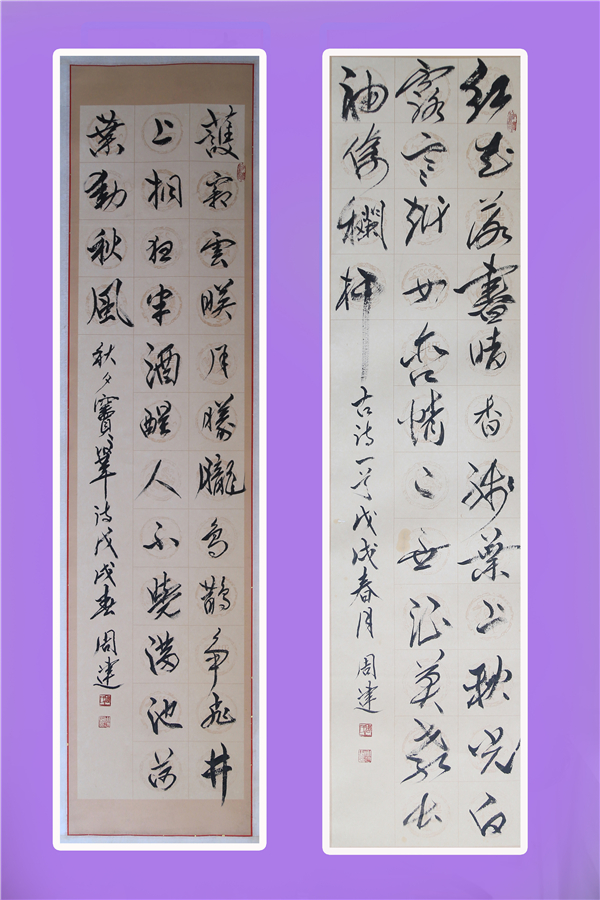 護霜雲映月朦朧烏鵲爭飛井
上桐夜半酒醒人不覺滿池荷
葉動秋風
秋夕竇鞏诗戊戌春周建
红衣落盡暗香残葉上秋光白
露寒越女含情已无限莫教长
袖倚欄杆
古诗一首戊戌春月周建